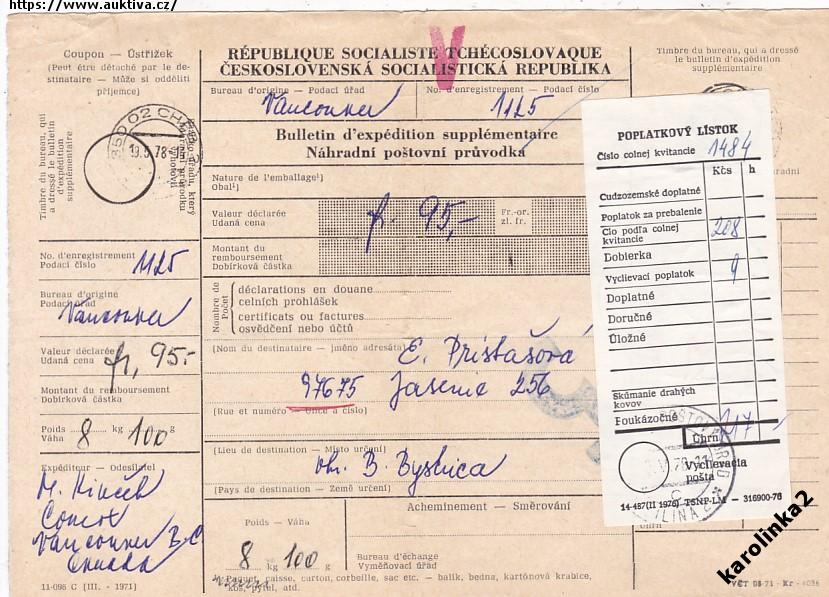 https://www.auktiva.cz/
Coupon — Ústřižek
(Peut être détaché par le de-
stinataire — Může si odděliti
příjemce)
Timbre du bureau, qui
a dressé le bulletin
d'expédition
supplémentaire
19.5.78
No. d'enregistrement
Podací číslo 1125
Bureau d'origine
Podací úřad
Vancouver
Valeur déclarée
Udaná cena fr. 95.-
Montant du remboursement
Dobírková částka
Poids
Váha 8 kg 100 g
Expéditeur — Odesílatel
Vancouver B.C.
Canada
11-096 C (III. - 1971)
RÉPUBLIQUE SOCIALISTE TCHÉCOSLOVAQUE
ČESKOSLOVENSKÁ SOCIALISTICKÁ REPUBLIKA
Bureau d'origine — Podací úřad
Vancouver
No. d'enregistrement — Podací číslo
1125
Bulletin d'expédition supplémentaire
Náhradní poštovní průvodka
Nature de l'emballage¹)
Obal¹)
Valeur déclarée
Udaná cena
fr. 95,-
Fr.-or.
zl. fr.
Montant du
remboursement
Dobírková částka
Nombre de
Počet
déclarations en douane
celních prohlášek
certificats ou factures
osvědčení nebo účtů
(Nom du destinataire — jméno adresáta)
E. Pristašová
97675 Jasenie 256
(Rue et numéro — Ulice a číslo)
(Lieu de destination — Místo určení)
okr. B. Bystrica
(Pays de destination — Země určení)
Poids — Váha
8 kg 100 g
Acheminement — Směrování
Bureau d'échange
Vyměňovací úřad
¹) Paquet, caisse, carton, corbeille, sac etc. — balík, bedna, kartónová krabice,
koš, pytel, atd.
Timbre du bureau, qui a dressé
le bulletin d'expédition
supplémentaire
POPLATKOVÝ LÍSTOK
Číslo colnej kvitancie 1484
Kčs h
Cudzozemské doplatné
Poplatok za prebalenie
Clo podľa colnej
kvitancie 208
Dobierka
Vyclievací poplatok 9
Doplatné
Doručné
Úložné
Skúmanie drahých
kovov
Poukázočné
Úhrn 217 -
Vyclievacia
pošta
14-487 (II 1976) TSNP-LM — 316900-76
karolinka2